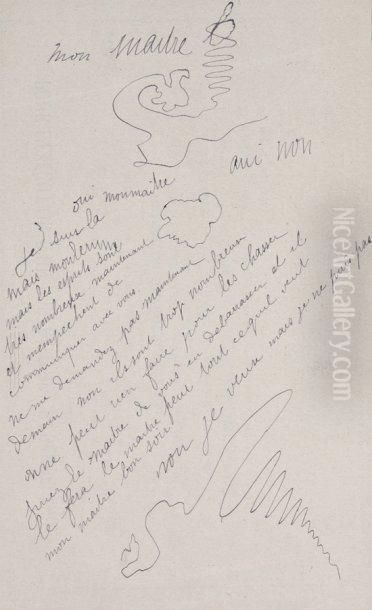 mon maitre
oui non
oui mon maitre
je suis la
mais
mais les esprits sont
tres nombreux maintenant
et m'empechent de
communiquer avec vous
ne me demandez pas maintenant
demain non ils sont trop nombreux
on ne peut rien faire pour les chasser
priez le maitre de vous en debarasser et il
le fera le maitre peut tout ce qu'il veut
mon maitre bon soir
non je veux mais je ne puis pas
NiceArtGallery.com